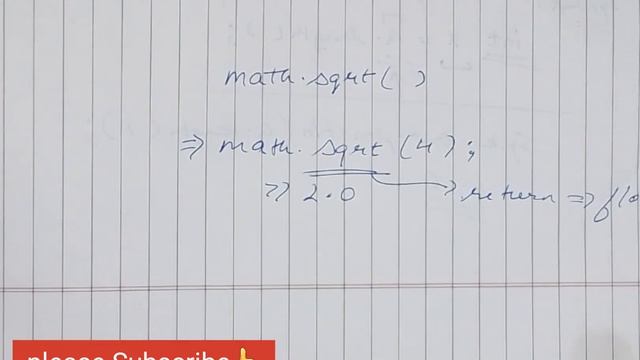 math.sqrt( )
⇒ math.sqrt(4);
>> 2.0 → return ⇒ flo
please Subscribe👍